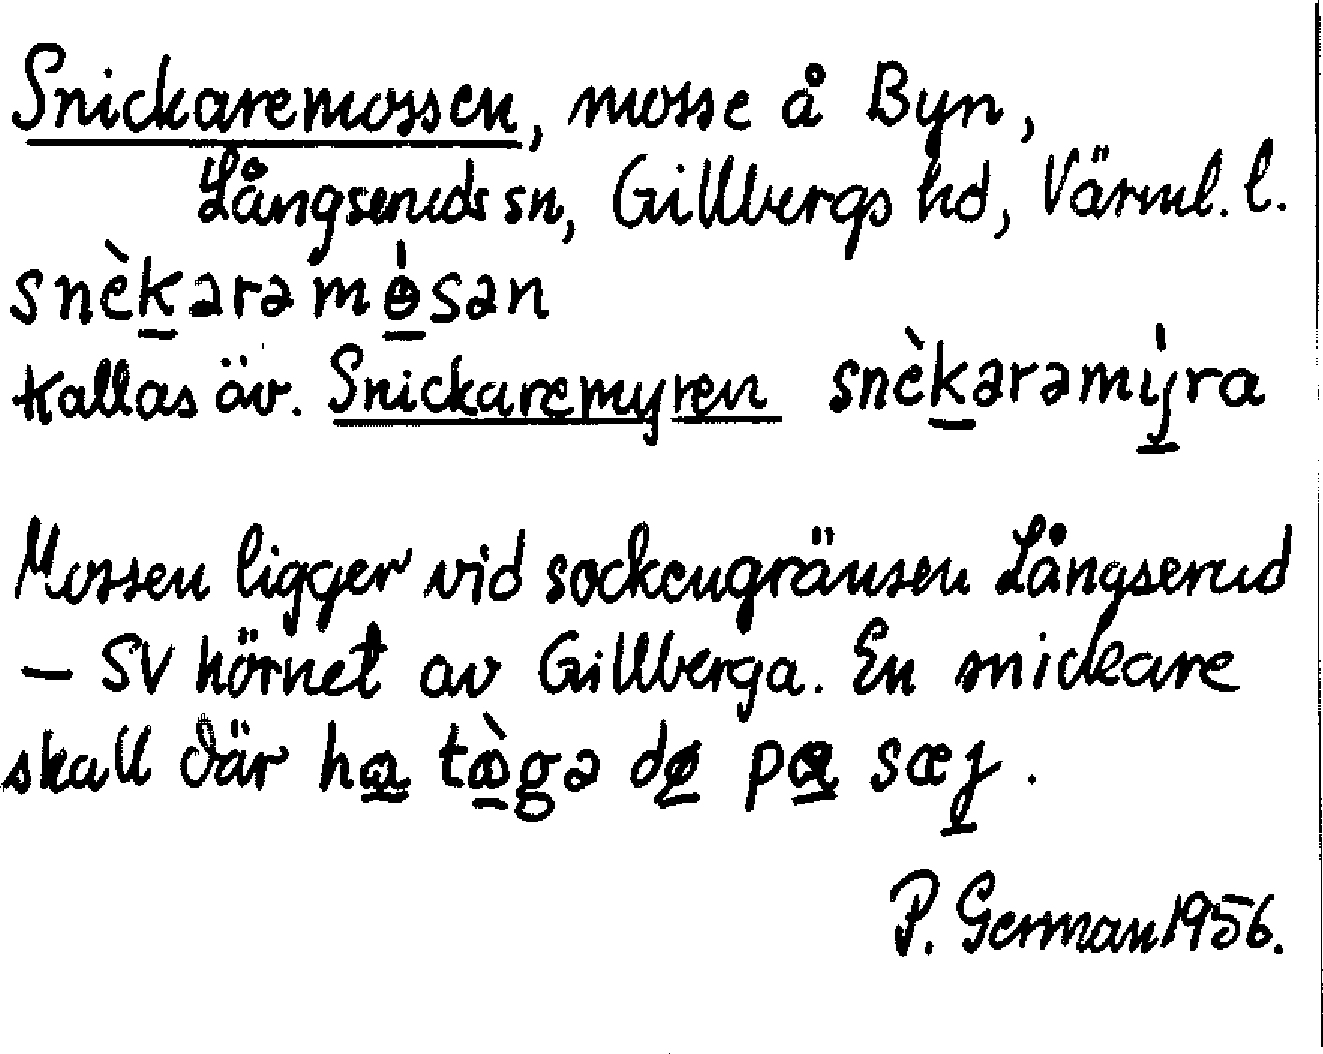 Snickaremossen, mosse å Byn,
Långseruds sn, Gillbergs hd, Värml. l.
snèkaramɵ́san
Kallas äv. Snickaremyren snèkaramýra
Mossen ligger vid sockengränsen Långserud
– SV hörnet av Gillberga. En snickare
skall där ha tàga dø pa sæj.
P. German 1956.